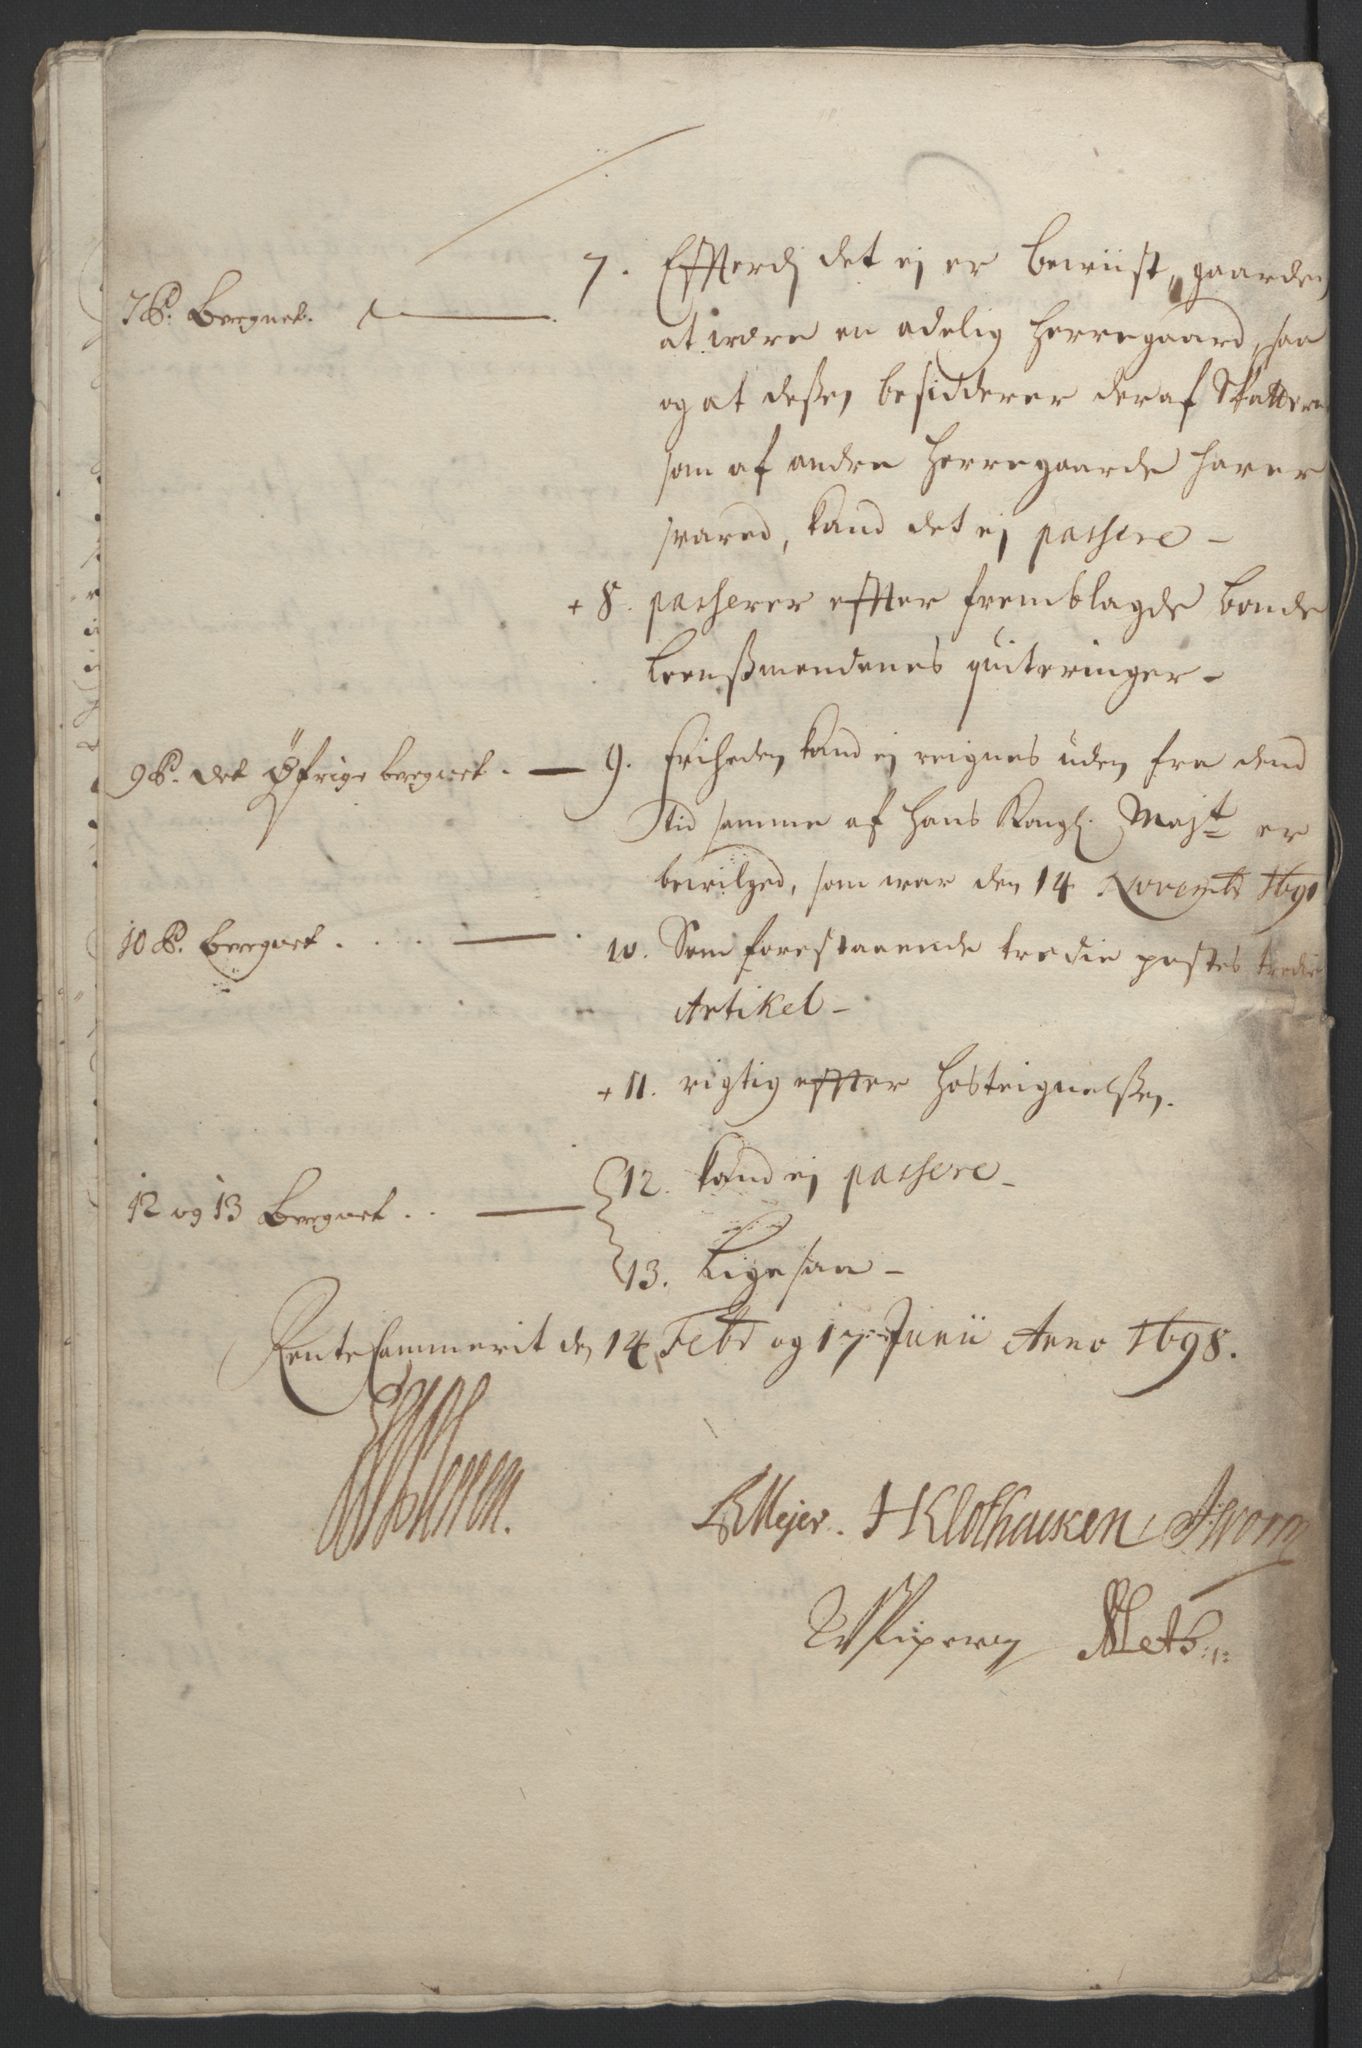 7 P. Beregnet.
7. Effterdj det ej er beviist, gaarden
at være en adelig Herregaard, saa
og at deßen besidderer deraf Skatterne
som af andre Herregaarde haver
svared, kand det ej passere –
+ 8. passerer effter fremblagde bonde
Leenßmendenes quiteringer –
9 P. det Øfrige beregnet. —
9. Friheden kand ej reignes uden fra dend
Tid samme af Hans Kongl. Majt er
bevilged, som war den 14 Novembr 1691
10 P. beregnet . . . . —
10. Som forestaaende tredie postes tredie
Artikel –
+ 11. rigtig effter Hosteignelßen.
12 og 13 Beregnet . . —
12. kand ej passere –
13. Ligesaa –
RenteCammerit den 14 Febr og 17 Junii Anno 1698.
Meyer. HKlothausen AWorm